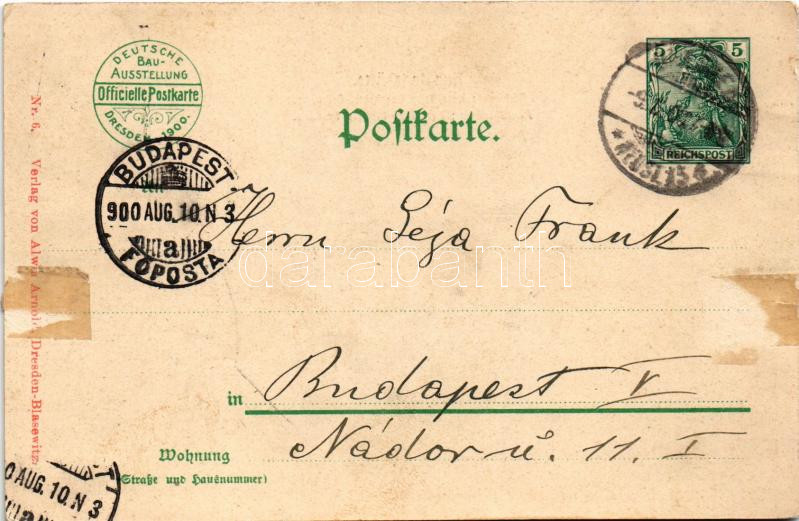 DEUTSCHE
BAU-
AUSSTELLUNG
Officielle Postkarte
DRESDEN 1900.
5 5
REICHSPOST
Postkarte.
Nr. 6. Verlag von Alwin Arnold, Dresden-Blasewitz.
BUDAPEST
900 AUG. 10. N 3
a
FŐPOSTA
An
Herrn Géja Frank
darabanth
in Budapest V
Nádor u. 11. I
Wohnung
(Straße und Hausnummer)
0 AUG. 10. N 3
a